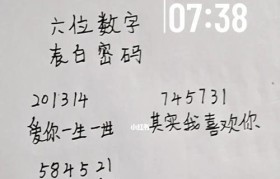 07:38
六位数字
表白密码
201314
745731
爱你一生一世
其实我喜欢你
小红书
584521